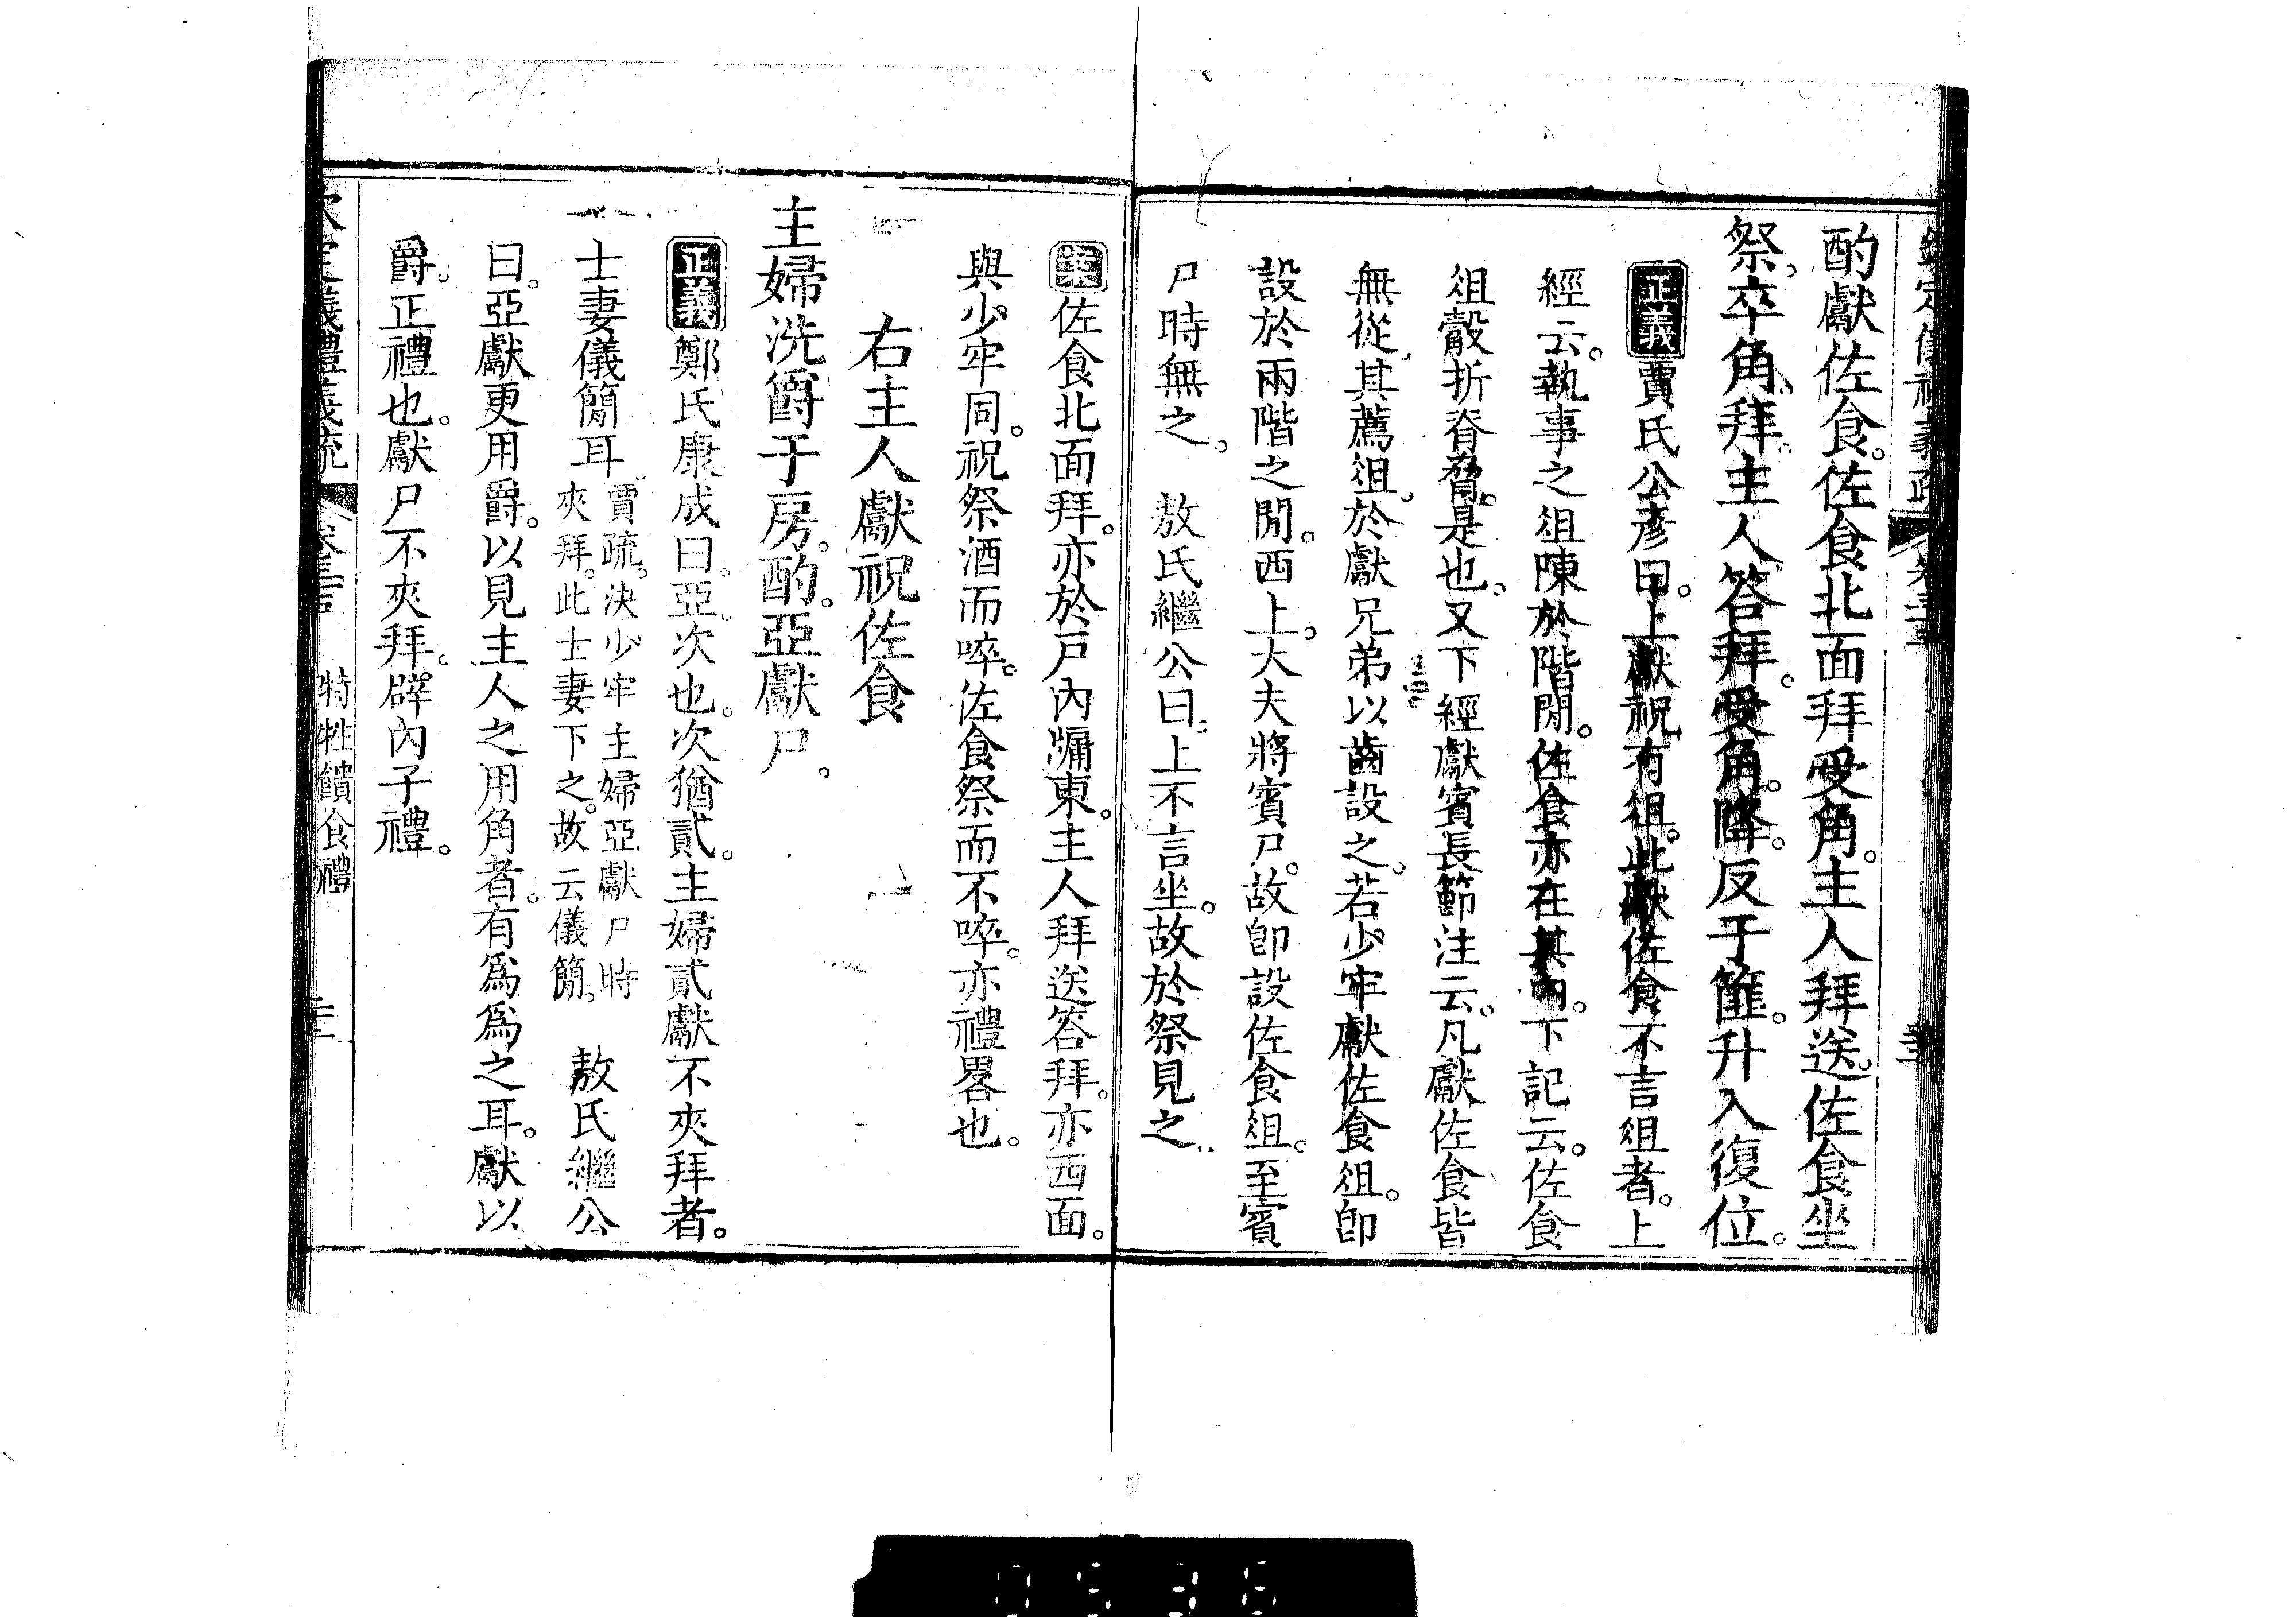 酌獻佐食。佐食北面拜受角。主人拜送。佐食坐
祭。卒角、拜。主人答拜。受角。降。反于篚。升入復位。
正義賈氏公彥曰。上獻祝有俎。此獻佐食不言俎者。上
經云。執事之俎陳於階閒。佐食亦在其內。下記云。佐食
俎觳折脊脅。是也。又下經獻賓長節注云。凡獻佐食皆
無從。其薦俎。於獻兄弟以齒設之。若少牢獻佐食俎。卽
設於兩階之閒。西上。大夫將賓尸。故卽設佐食俎。至賓
尸時無之。 敖氏繼公曰。上不言坐。故於祭見之。
案佐食北面拜。亦於戶內牖東。主人拜送答拜。亦西面。
與少牢同。祝祭酒而啐。佐食祭而不啐。亦禮畧也。
右主人獻祝佐食
主婦洗爵于房。酌。亞獻尸。
正義鄭氏康成曰。亞。次也。次猶貳。主婦貳獻不夾拜者。
士妻儀簡耳。賈疏。決少牢主婦亞獻尸時夾拜。此士妻下之。故云儀簡。 敖氏繼公
曰。亞獻更用爵。以見主人之用角者。有爲爲之耳。獻以
爵。正禮也。獻尸不夾拜。辟內子禮。
特牲饋食禮